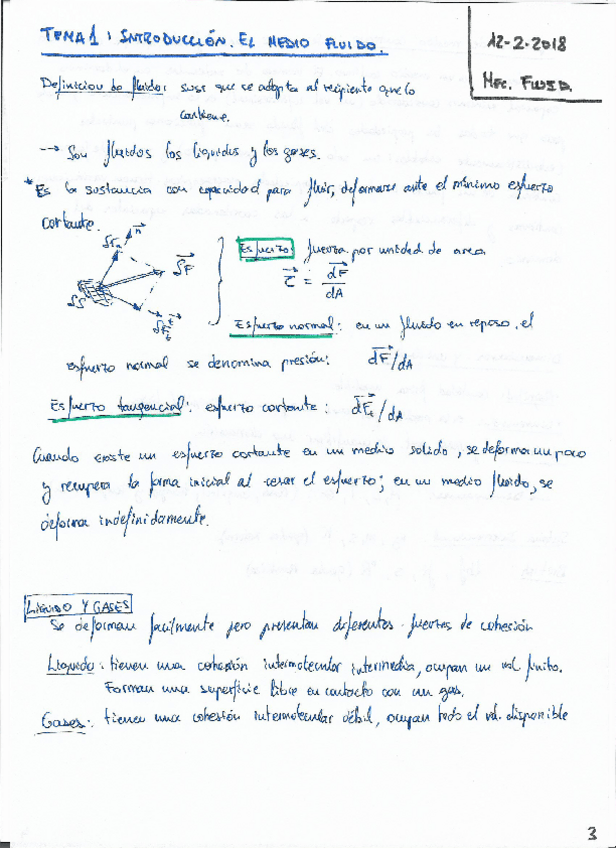 TEMA 1: INTRODUCCIÓN. EL MEDIO FLUIDO.
12-2-2018
MEC. FLUID.
Definicion de fluido: sust que se adapta al recipiente que lo
contiene.
→ Son fluidos los líquidos y los gases.
* Es la sustancia con capacidad para fluir, deformarse ante el mínimo esfuerzo
cortante.
Esfuerzo: fuerza por unidad de area
τ = dF/dA
δFn n
δF
δS
δFt t
Esfuerzo normal: en un fluido en reposo, el
esfuerzo normal se denomina presión: dF/dA
Esfuerzo tangencial: esfuerzo cortante: dFt/dA
Cuando existe un esfuerzo cortante en un medio solido, se deforma un poco
y recupera la forma inicial al cesar el esfuerzo; en un medio fluido, se
deforma indefinidamente.
LÍQUIDO Y GASES
Se deforman facilmente pero presentan diferentes fuerzas de cohesión
Liquido: tienen una cohesión intermolecular intermedia, ocupan un vol finito.
Forman una superficie libre en contacto con un gas.
Gases: tienen una cohesión intermolecular débil, ocupan todo el vol. disponible
3